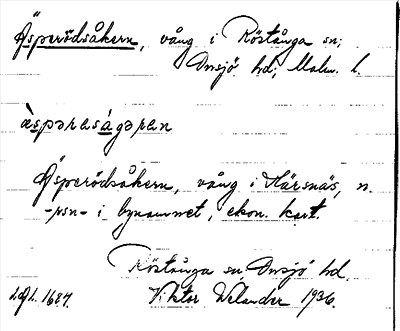 Äsperödsåkern, vång i Röstånga sn;
Onsjö hd; Malm. l.
àspəraságərən
Äsperödsåkern, vång i Härsnäs, n.
-rsn- i bynamnet, ekon. kart.
Röstånga sn, Onsjö hd.
Viktor Welander 1936.